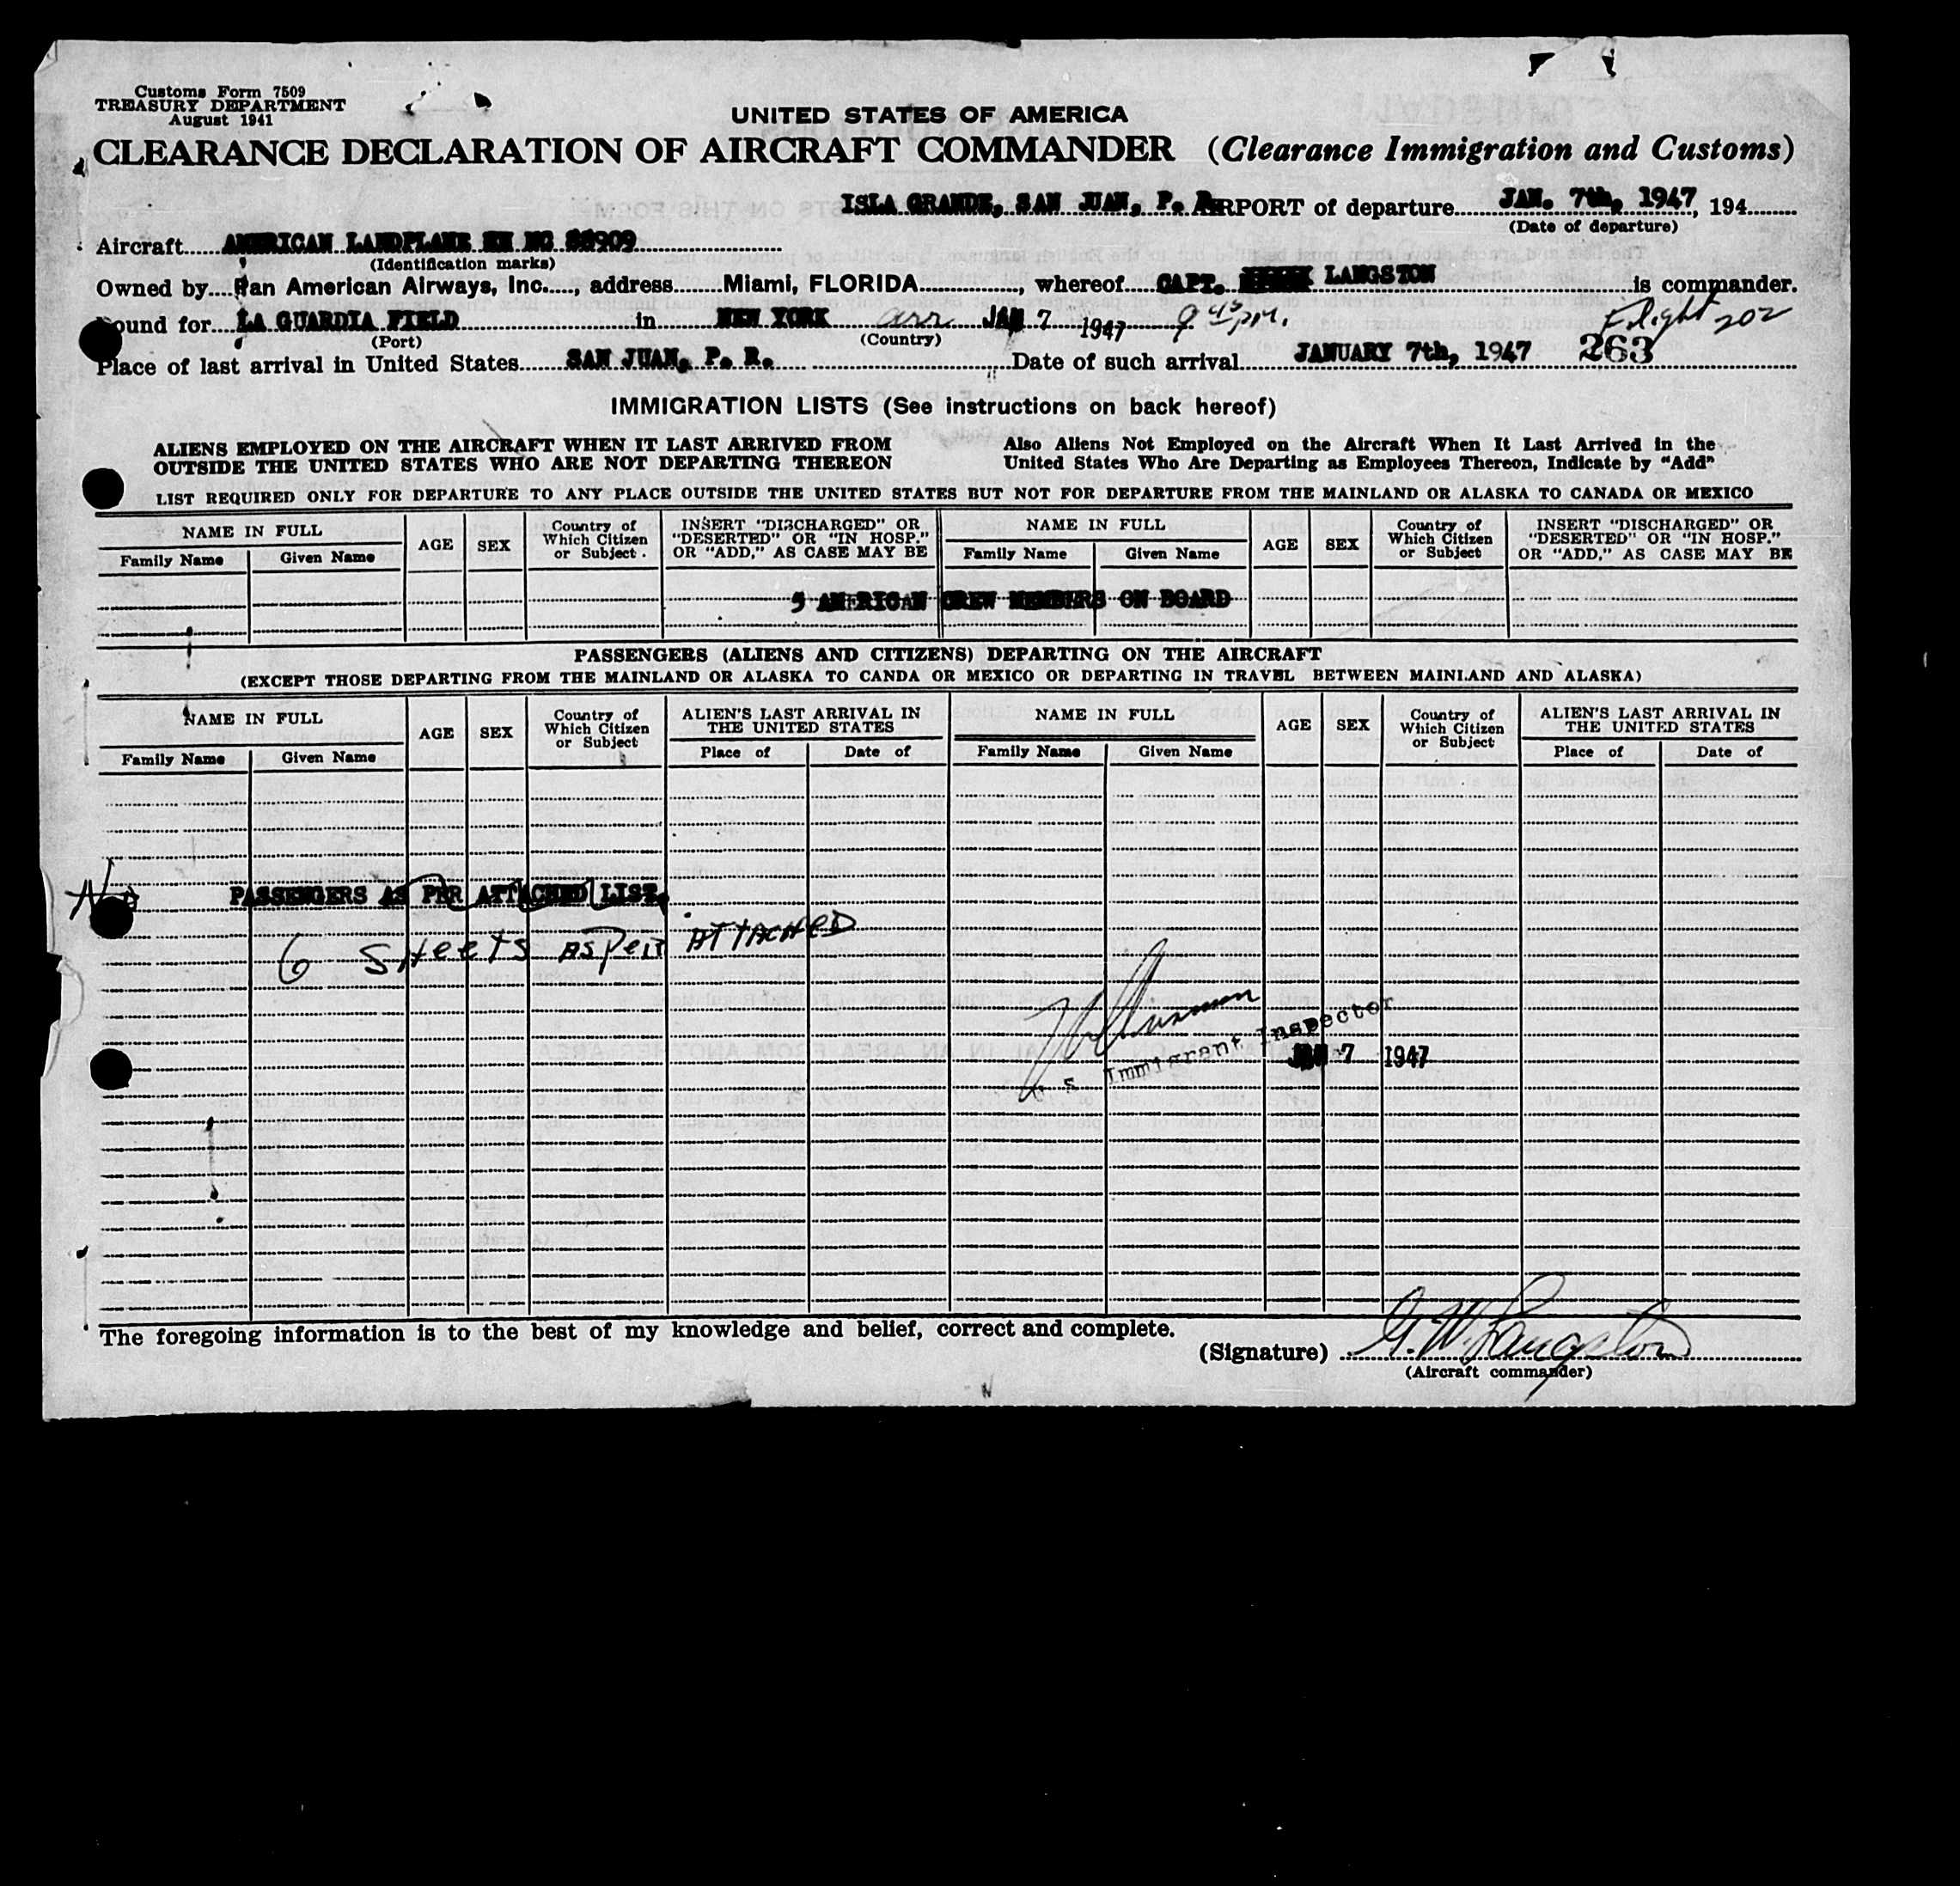 Customs Form 7509
TREASURY DEPARTMENT
August 1941
UNITED STATES OF AMERICA
CLEARANCE DECLARATION OF AIRCRAFT COMMANDER (Clearance Immigration and Customs)
ISLA GRANDE, SAN JUAN, P. R. AIRPORT of departure JAN. 7th, 1947, 194
(Date of departure)
Aircraft AMERICAN LANDPLANE NC 88909
(Identification marks)
Owned by Pan American Airways, Inc., address Miami, FLORIDA, whereof CAPT. LANGSTON is commander.
Bound for LA GUARDIA FIELD in NEW YORK arr JAN 7 1947 9 45 pm. Flight 202
(Port) (Country) 263
Place of last arrival in United States SAN JUAN, P. R. Date of such arrival JANUARY 7th, 1947
IMMIGRATION LISTS (See instructions on back hereof)
ALIENS EMPLOYED ON THE AIRCRAFT WHEN IT LAST ARRIVED FROM
OUTSIDE THE UNITED STATES WHO ARE NOT DEPARTING THEREON
Also Aliens Not Employed on the Aircraft When It Last Arrived in the
United States Who Are Departing as Employees Thereon, Indicate by "Add"
LIST REQUIRED ONLY FOR DEPARTURE TO ANY PLACE OUTSIDE THE UNITED STATES BUT NOT FOR DEPARTURE FROM THE MAINLAND OR ALASKA TO CANADA OR MEXICO
NAME IN FULL
Family Name Given Name
AGE
SEX
Country of
Which Citizen
or Subject
INSERT "DISCHARGED" OR
"DESERTED" OR "IN HOSP."
OR "ADD," AS CASE MAY BE
NAME IN FULL
Family Name Given Name
AGE
SEX
Country of
Which Citizen
or Subject
INSERT "DISCHARGED" OR
"DESERTED" OR "IN HOSP."
OR "ADD," AS CASE MAY BE
5 AMERICAN CREW MEMBERS ON BOARD
PASSENGERS (ALIENS AND CITIZENS) DEPARTING ON THE AIRCRAFT
(EXCEPT THOSE DEPARTING FROM THE MAINLAND OR ALASKA TO CANDA OR MEXICO OR DEPARTING IN TRAVEL BETWEEN MAINLAND AND ALASKA)
NAME IN FULL
Family Name Given Name
AGE
SEX
Country of
Which Citizen
or Subject
ALIEN'S LAST ARRIVAL IN
THE UNITED STATES
Place of Date of
NAME IN FULL
Family Name Given Name
AGE
SEX
Country of
Which Citizen
or Subject
ALIEN'S LAST ARRIVAL IN
THE UNITED STATES
Place of Date of
PASSENGERS AS PER ATTACHED LIST.
6 SHeets AS Per ATTACHED
U S Immigrant Inspector
JAN 7 1947
The foregoing information is to the best of my knowledge and belief, correct and complete.
(Signature) G. W. Langston
(Aircraft commander)